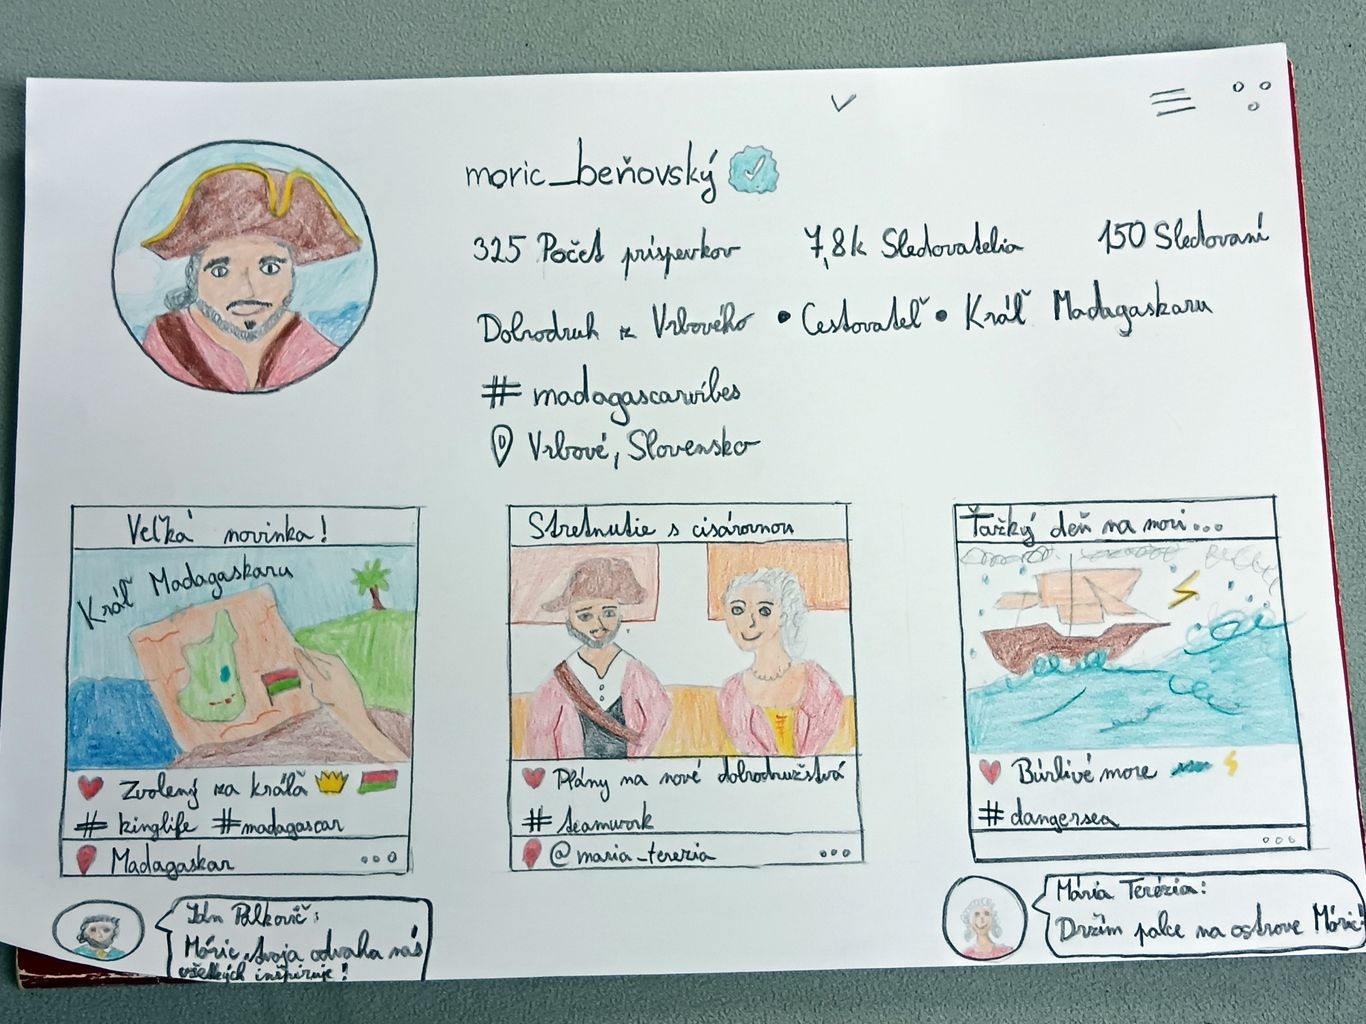 moric_beňovský
325 Počet príspevkov 7,8k Sledovatelia 150 Sledovaní
Dobrodruh z Vrbového • Cestovateľ • Kráľ Madagaskaru
# madagascarvibes
Vrbové, Slovensko
Veľká novinka!
Kráľ Madagaskaru
Zvolený za kráľa
# kinglife #madagascar
Madagaskar
Ján Palkovič:
Móric, tvoja odvaha nás
všetkých inšpiruje!
Stretnutie s cisárovnou
Plány na nové dobrodružstvá
# teamwork
@maria_terezia
Ťažký deň na mori...
Búrlivé more
# dangersea
Mária Terézia:
Držím palce na ostrove Móric!